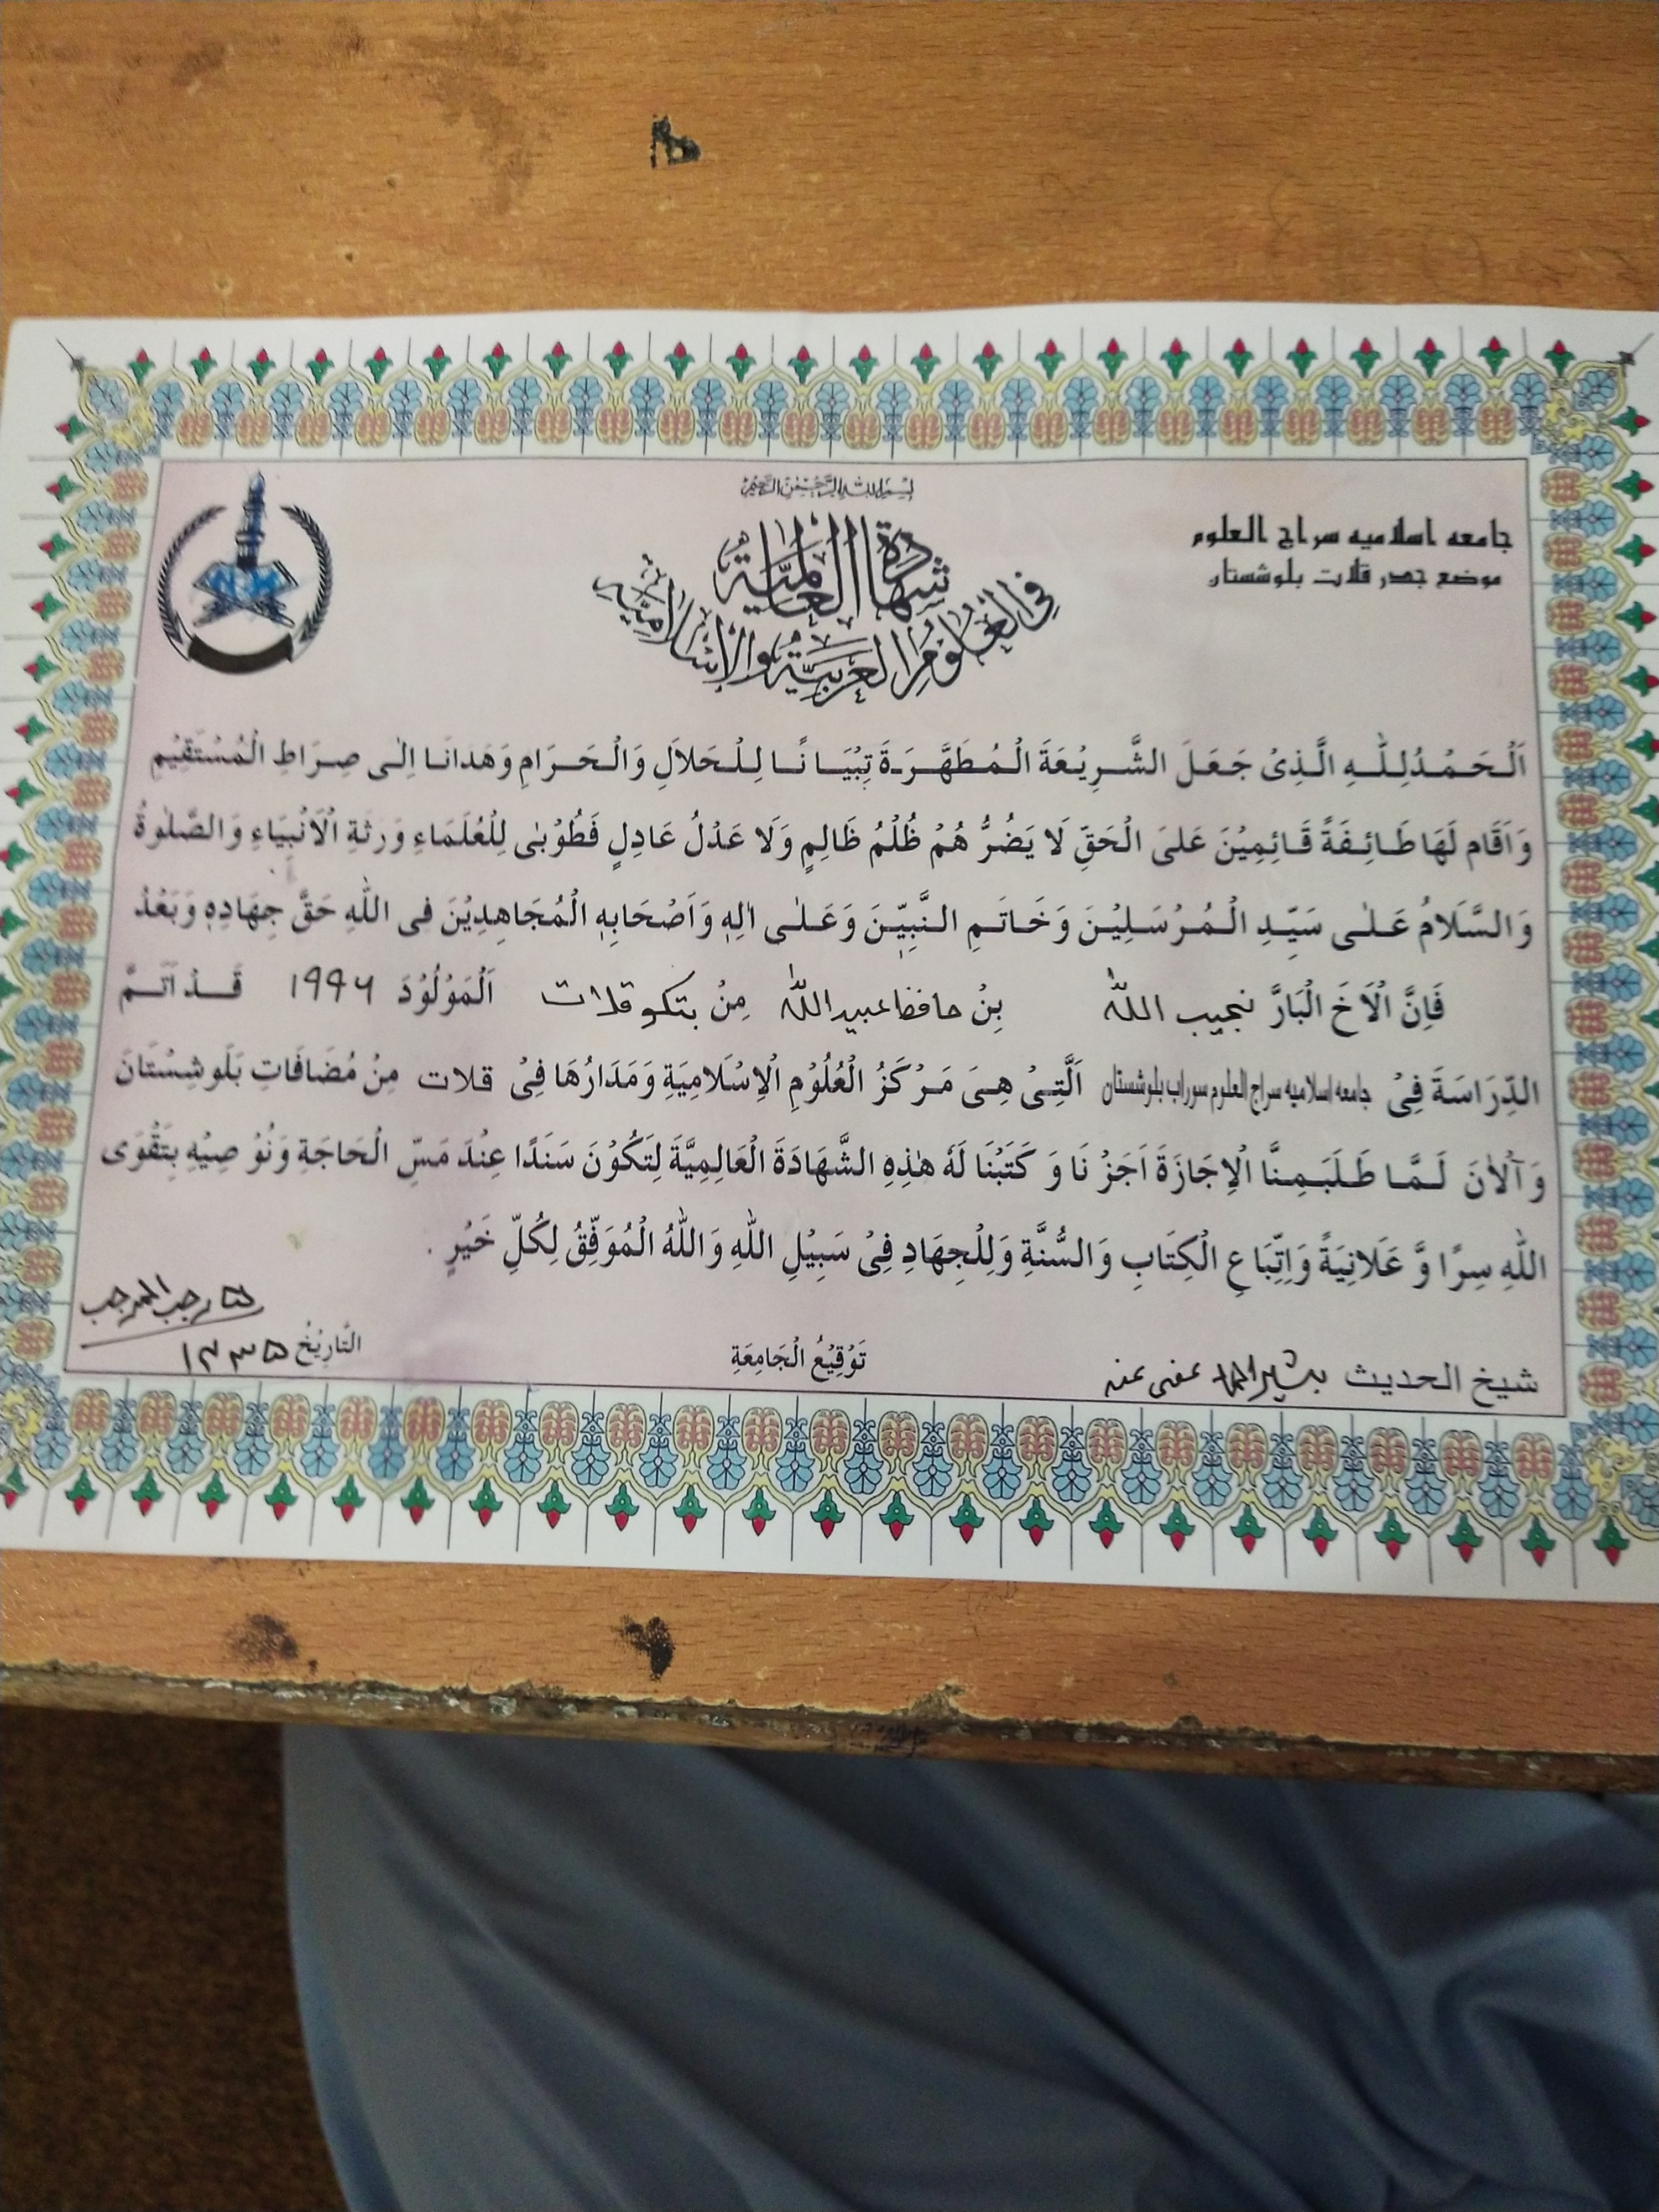 بسم الله الرحمن الرحيم
جامعه اسلاميه سراج العلوم
موضع جدر قلات بلوشستان
شهادة العالمية
في العلوم العربية والإسلامية
اَلْحَمْدُلِلّٰهِ الَّذِیْ جَعَلَ الشَّرِيْعَةَ الْمُطَهَّرَةَ تِبْيَانًا لِلْحَلَالِ وَالْحَرَامِ وَهَدَانَا اِلٰى صِرَاطِ الْمُسْتَقِيْمِ
وَاَقَامَ لَهَا طَائِفَةً قَائِمِيْنَ عَلىَ الْحَقِّ لَا يَضُرُّ هُمْ ظُلْمُ ظَالِمٍ وَلَا عَدْلُ عَادِلٍ فَطُوْبٰى لِلْعُلَمَاءِ وَرَثَةِ الْاَنْبِيَاءِ وَالصَّلٰوةُ
وَالسَّلَامُ عَلٰى سَيِّدِ الْمُرْسَلِيْنَ وَخَاتَمِ النَّبِيّٖنَ وَعَلٰى اٰلِهٖ وَاَصْحَابِهِ الْمُجَاهِدِيْنَ فى اللّٰهِ حَقَّ جِهَادِهٖ وَبَعْدُ
فَاِنَّ الْاَخَ الْبَارَّ نجيب اللّٰه بِنْ حافظ عبيد اللّٰه مِنْ بتكو قلات اَلْمَوْلُوْدَ ١٩٩٦ قَدْاَتَمَّ
الدِّرَاسَةَ فِیْ جامعه اسلاميه سراج العلوم سوراب بلوشستان اَلَّتِیْ هِیَ مَرْكَزُ الْعُلُوْمِ الْاِسْلَامِيَةِ وَمَدَارُهَا فِیْ قلات مِنْ مُضَافَاتِ بَلَوشِسْتَانَ
وَ اَلْاٰنَ لَمَّا طَلَبَمِنَّا الْاِجَازَةَ اَجَزْ نَا وَ كَتَبْنَا لَهٗ هٰذِهِ الشَّهَادَةَ الْعَالِمِيَّةَ لِتَكُوْنَ سَنَدًا عِنْدَ مَسِّ الْحَاجَةِ وَنُوْ صِيْهِ بِتَقْوَى
اللّٰهِ سِرًا وَّ عَلَانِيَةً وَاِتِّبَاعِ الْكِتَابِ وَالسُّنَّةِ وَلِلْجِهَادِ فِیْ سَبِيْلِ اللّٰهِ وَاللّٰهُ الْمُوَفِّقُ لِكُلِّ خَيْرٍ .
رجب المرجب
شيخ الحديث بشير احمد عفى عنه تَوْقِيْعُ الْجَامِعَةِ التَّارِيْخُ ١٤٣٥